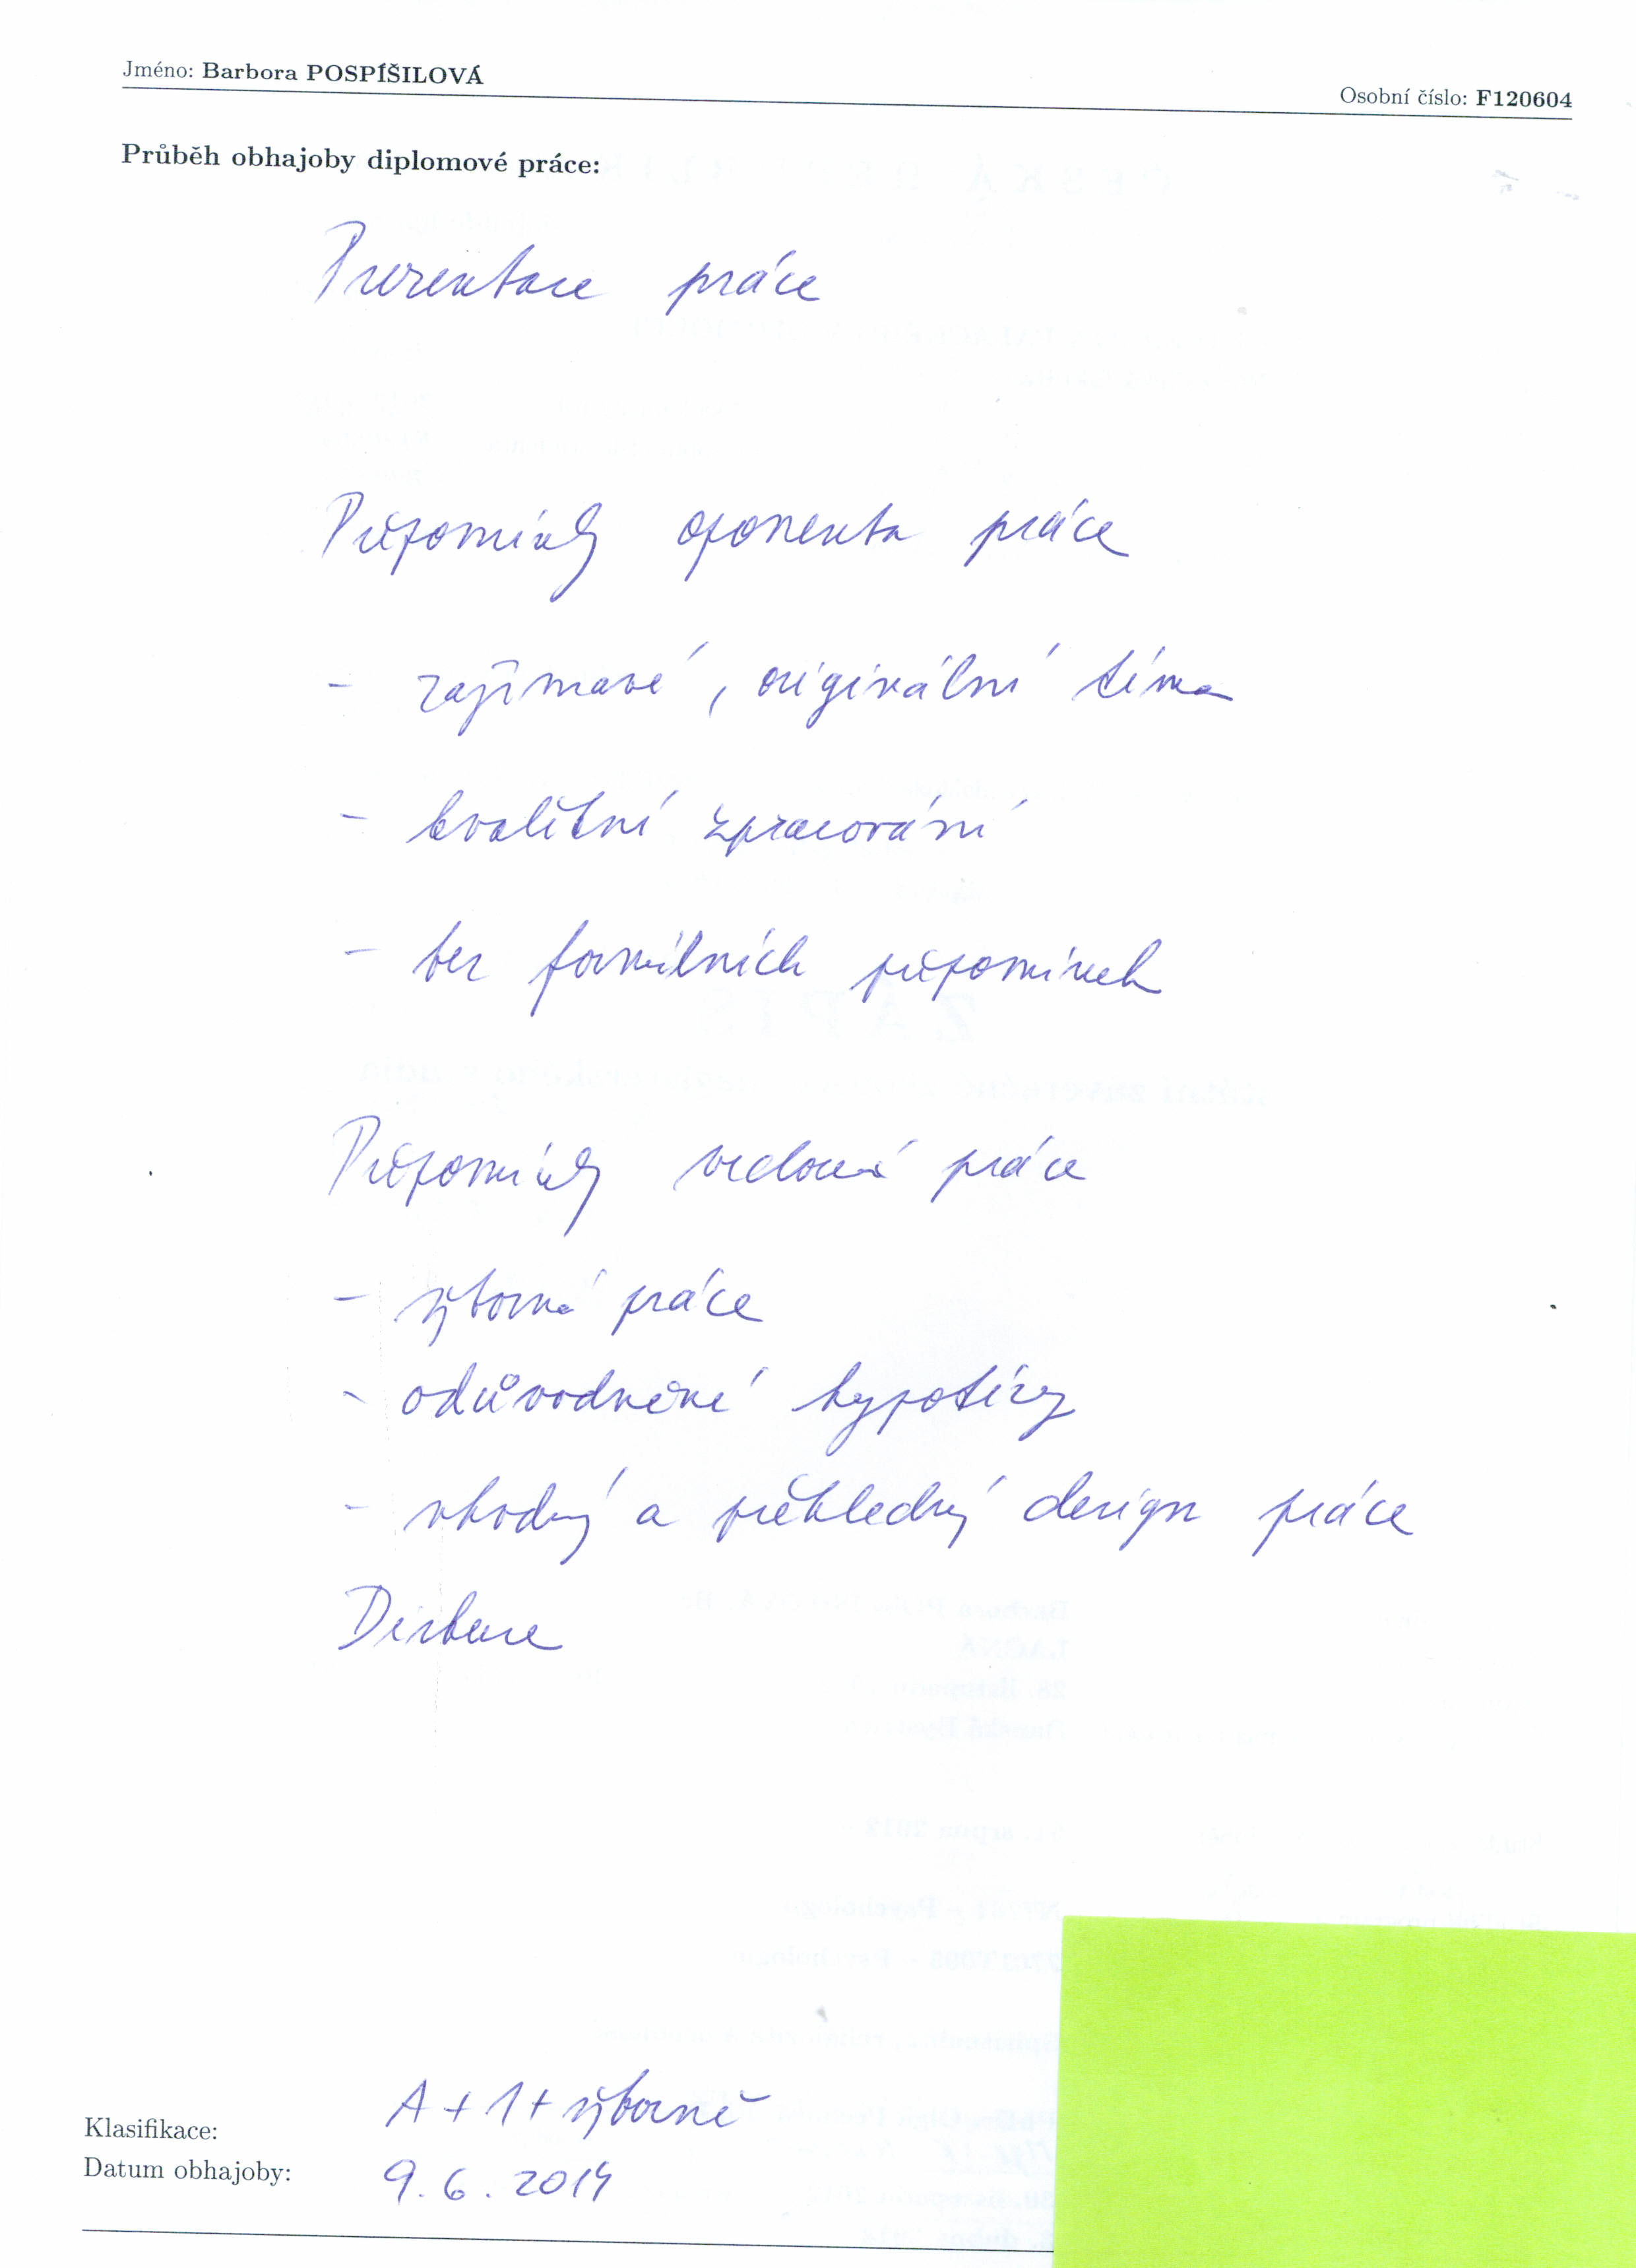 Jméno: Barbora POSPÍŠILOVÁ
Osobní číslo: F120604
Průběh obhajoby diplomové práce:
Prezentace práce
Připomínky oponenta práce
- zajímavé, originální téma
- kvalitní zpracování
- bez formálních připomínek
Připomínky vedoucí práce
- výborná práce
- odůvodněné hypotézy
- vhodný a přehledný design práce
Diskuse
Klasifikace: A + 1 + výborně
Datum obhajoby: 9. 6. 2014